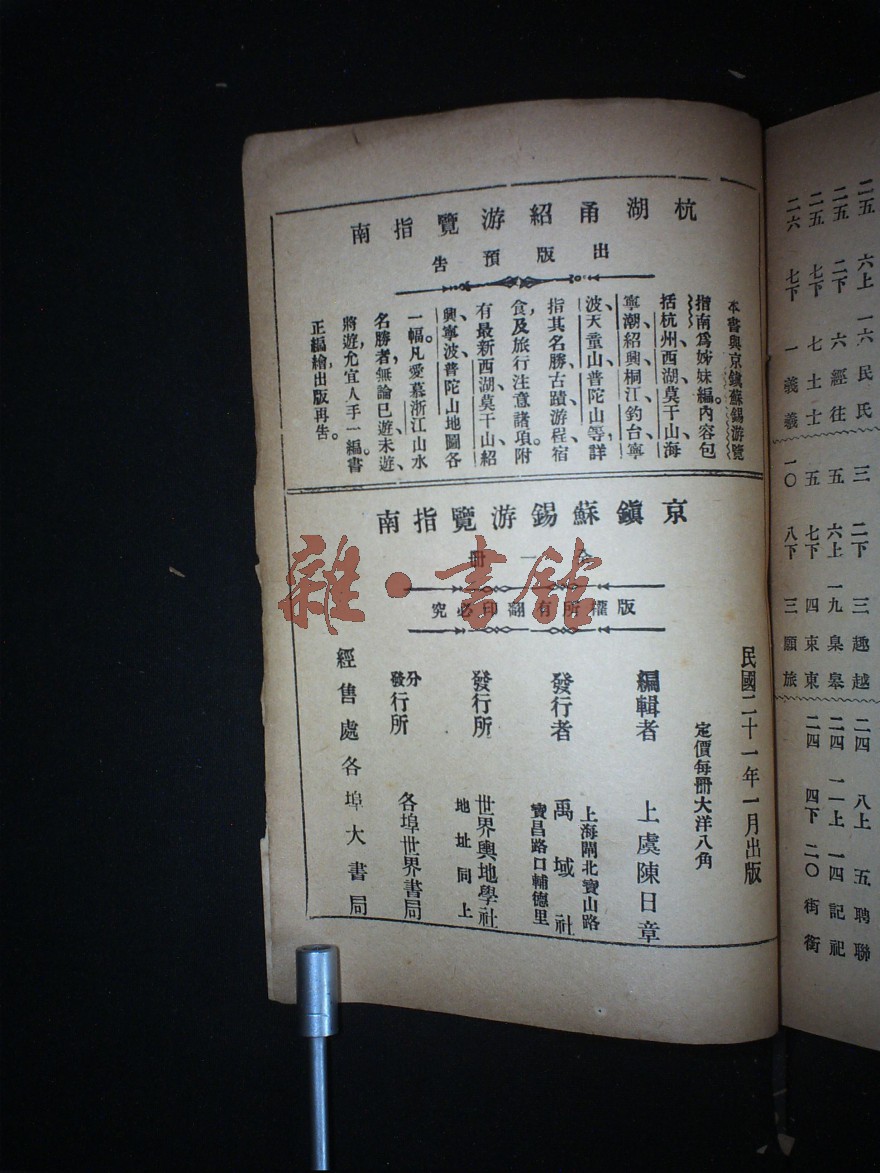 杭湖甬紹游覽指南
出版預告
本書與京鎭蘇錫游覽
指南爲姊妹編。內容包
括杭州、西湖、莫干山、海
寧潮、紹興、桐江釣台、寧
波、天童山、普陀山等，詳
指其名勝古蹟、游程、宿
食，及旅行注意諸項。附
有最新西湖、莫干山、紹
興、寧波、普陀山地圖各
一幅。凡愛慕浙江山水
名勝者，無論已遊、未遊、
將遊，尤宜人手一編。書
正編繪，出版再告。
京鎭蘇錫游覽指南
全一冊
版權所有翻印必究
民國二十一年一月出版
定價每冊大洋八角
編輯者 上虞陳日章
發行者 禹域社
上海閘北寶山路
寶昌路口輔德里
發行所 世界輿地學社
地址同上
分發行所 各埠世界書局
經售處各埠大書局
雜·書館
二五 六上 一六 民 氏
二五 二下 六 經 往
二五 七下 七 土 士
二六 七下 一 義 義
三 二下 三 趣 越
五 六上 一九 臯 皋
五 七下 四 東 東
一〇 八下 三 願 旅
二四 八上 五 聘 聯
二四 一一上 一四 記 祀
二四 四下 二〇 街 衖